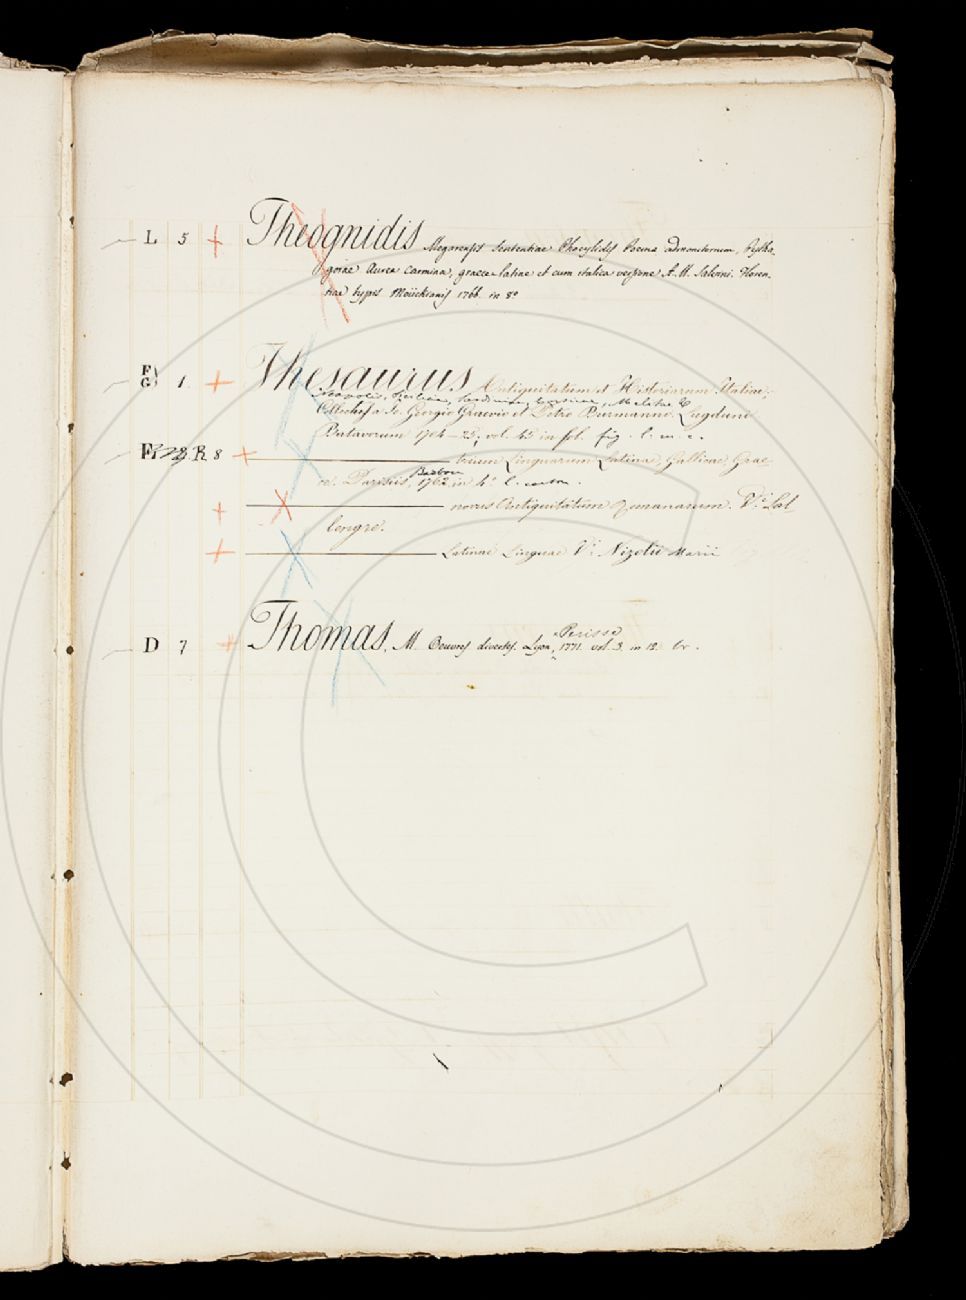 L 5 + Theognidis Megarensis Sententiae Phocylidis Poema admonitorium, Pytha-
gorae Aurea Carmina, graece-latine et cum italica versione A. M. Salvini. Floren-
tiae typis Moückianis 1766. in 8º
F)
G) 1. + Thesaurus Antiquitatum et Historiarum Italiae,
Neapolis, Siciliae, Sardiniae, Corsicae, Melitae &
Collectus a Jo. Georgio Graevio et Petro Burmanno. Lugduni
Batavorum 1704-25, vol. 45 in fol. fig.
R 8 + trium Linguarum Latinae, Gallicae, Grae-
cae. Parisiis, Barbou 1762 in 4º
+ novus Antiquitatum Romanarum. Vº. Sal-
lengre.
+ Latinae Linguae Vº. Nizolii Marii
D 7 + Thomas, M. Oeuvres diverses. Lyon, Perisse 1771. vol. 3. in 12. br.